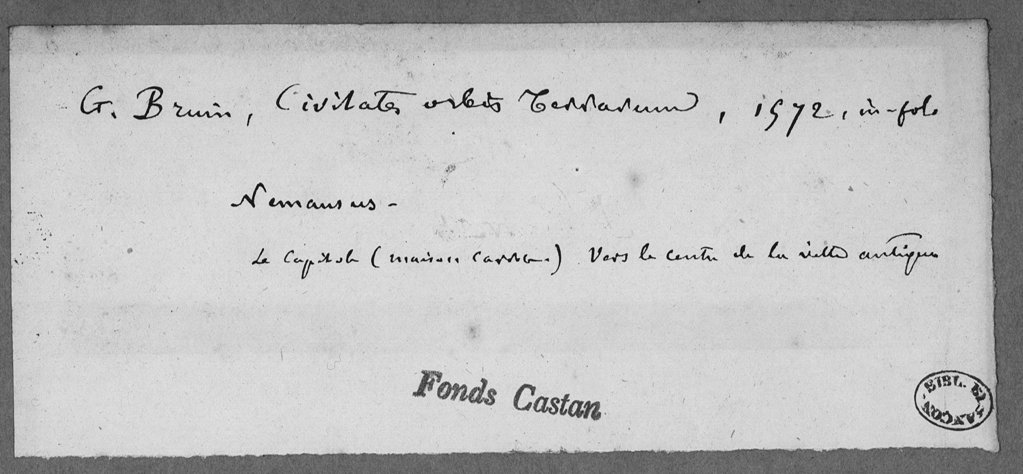 G. Bruin, Civitates orbis terrarum, 1572, in-fol.
Nemausus -
Le Capitole (maison carrée) vers le centre de la ville antique
Fonds Castan
BIBL. BESANÇON